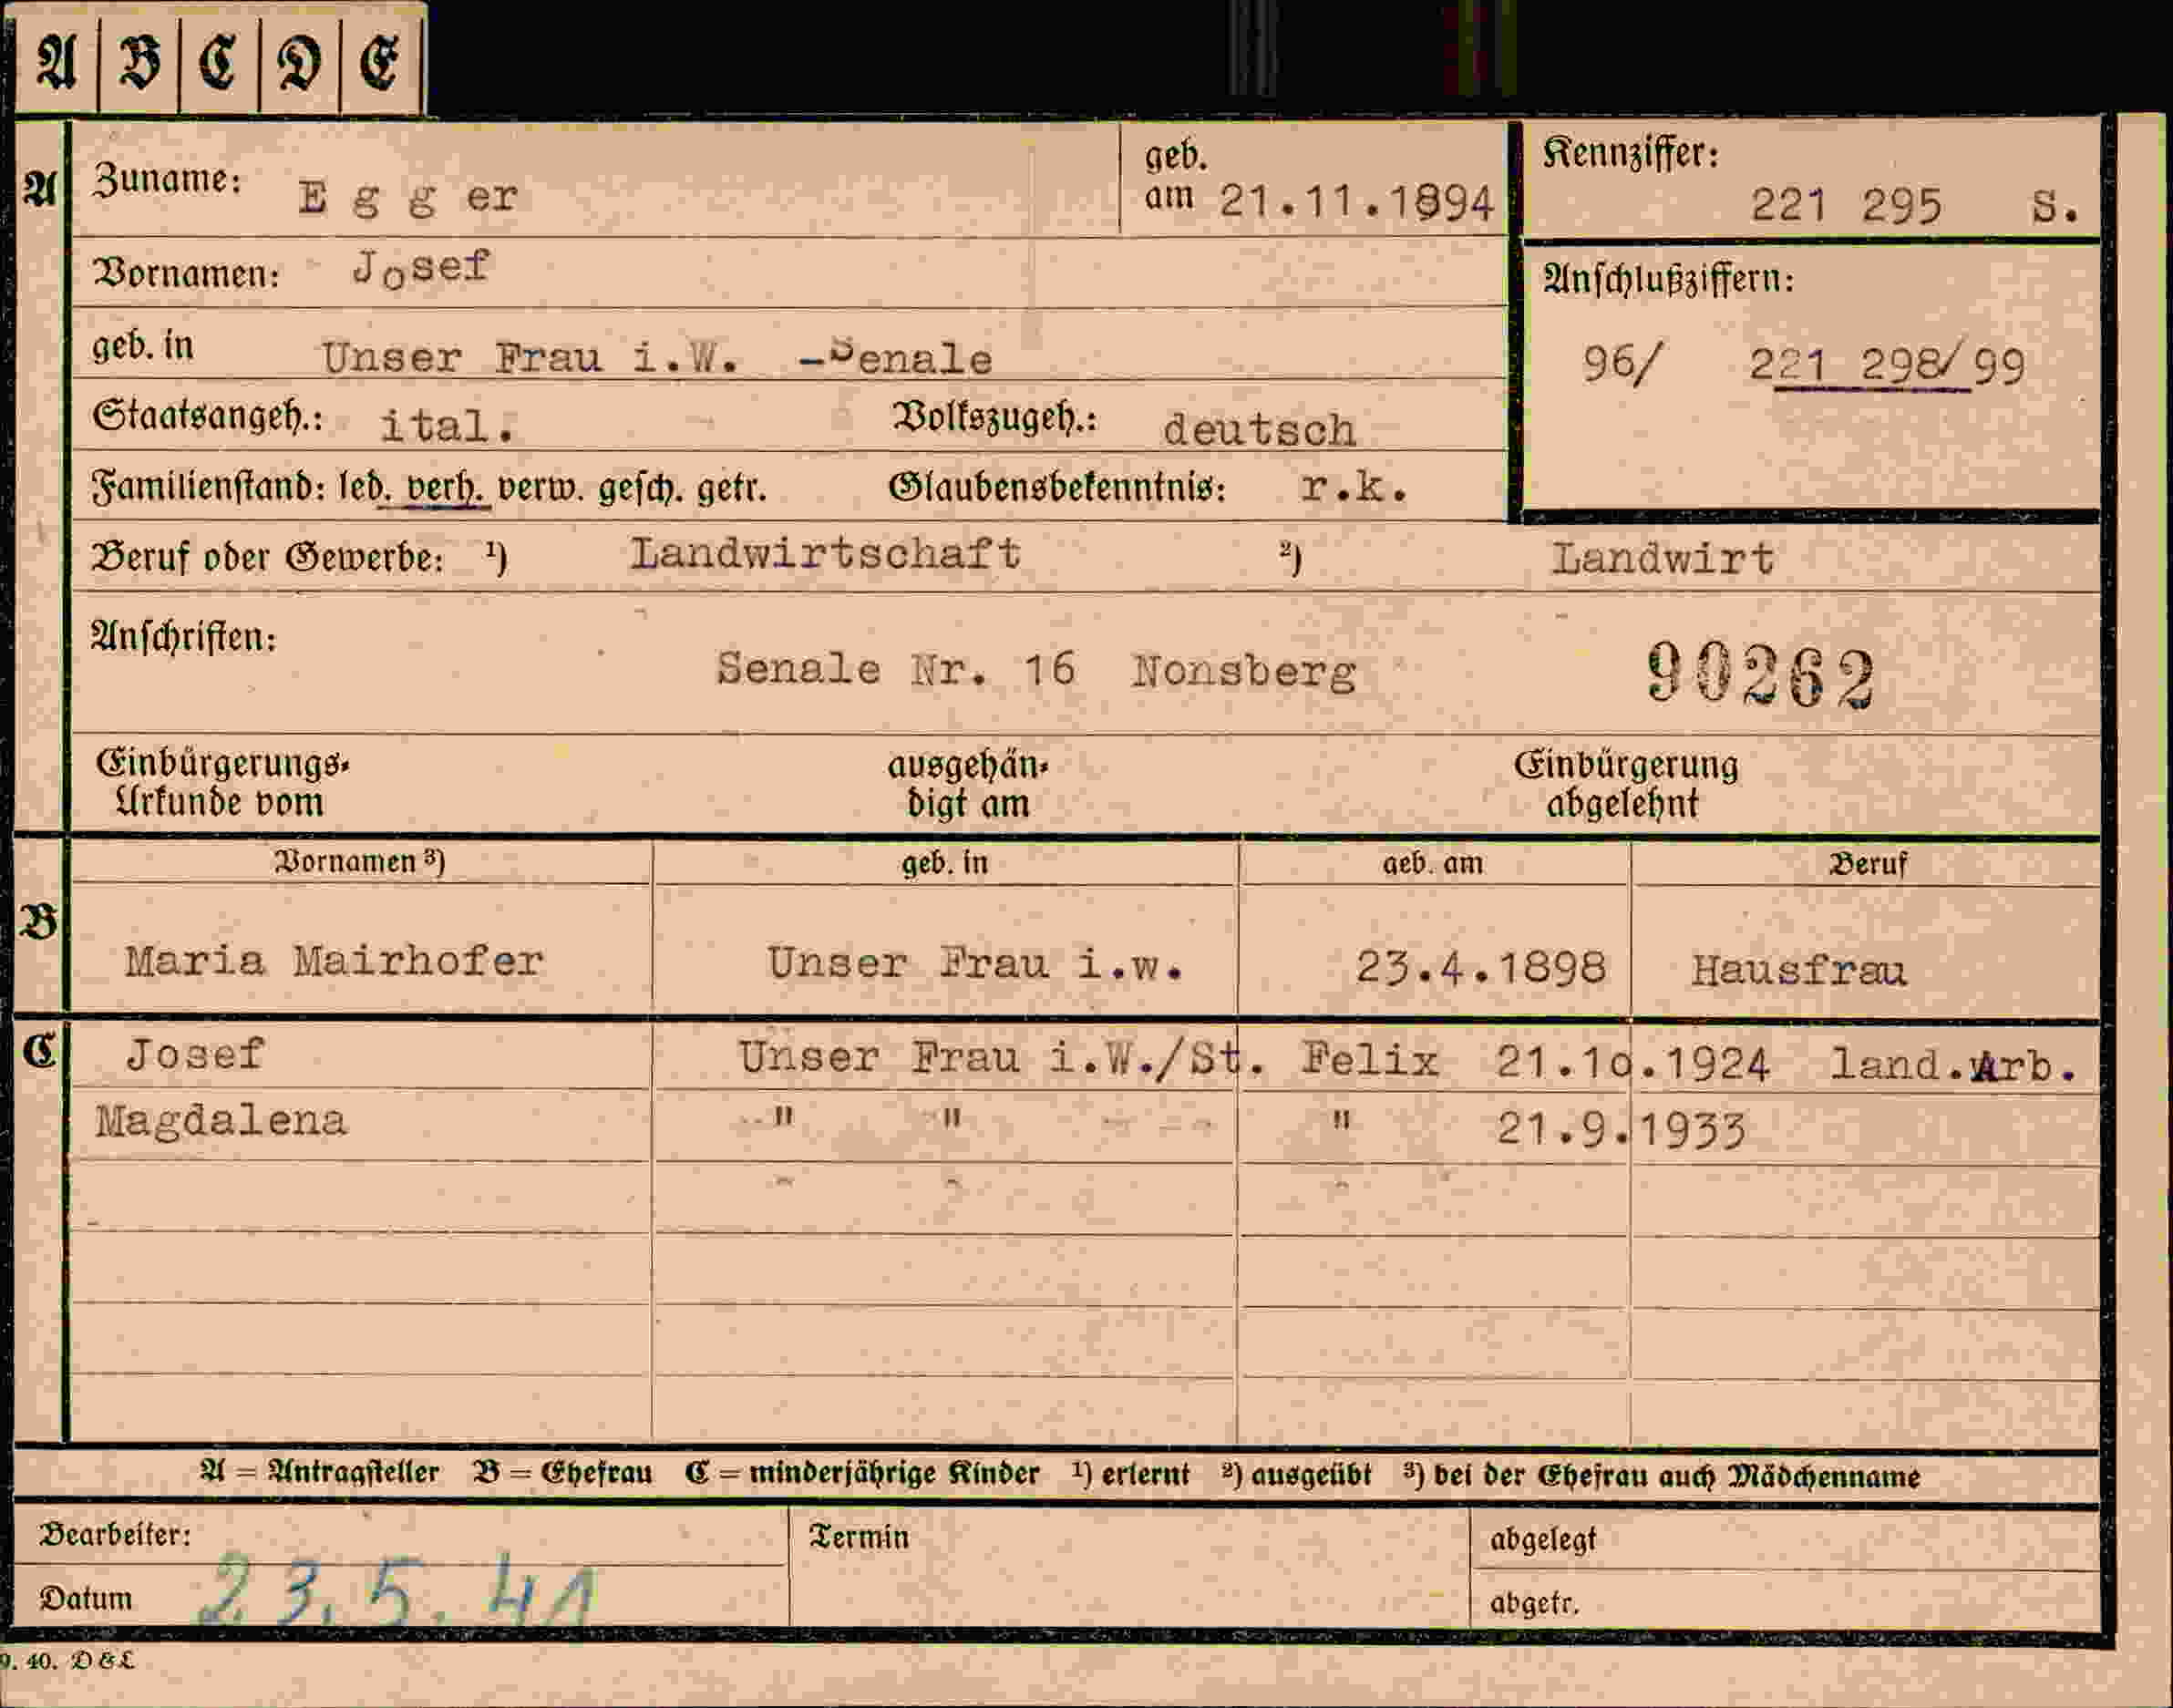 A B C D E
A Zuname: E g g er geb. am 21.11.1894 Kennziffer: 221 295 S.
Vornamen: Josef Anschlußziffern:
geb. in Unser Frau i.W. -Senale 96/ 221 298/99
Staatsangeh.: ital. Volkszugeh.: deutsch
Familienstand: led. verh. verw. gesch. getr. Glaubensbekenntnis: r.k.
Beruf oder Gewerbe: ¹) Landwirtschaft ²) Landwirt
Anschriften: Senale Nr. 16 Nonsberg 90262
Einbürgerungs- ausgehän- Einbürgerung
Urkunde vom digt am abgelehnt
Vornamen ³) geb. in geb. am Beruf
B Maria Mairhofer Unser Frau i.w. 23.4.1898 Hausfrau
C Josef Unser Frau i.W./St. Felix 21.1o.1924 land.Arb.
Magdalena " " " 21.9.1933
A = Antragsteller B = Ehefrau C = minderjährige Kinder ¹) erlernt ²) ausgeübt ³) bei der Ehefrau auch Mädchenname
Bearbeiter: Termin abgelegt
Datum 23.5.41 abgetr.
9. 40. D & L